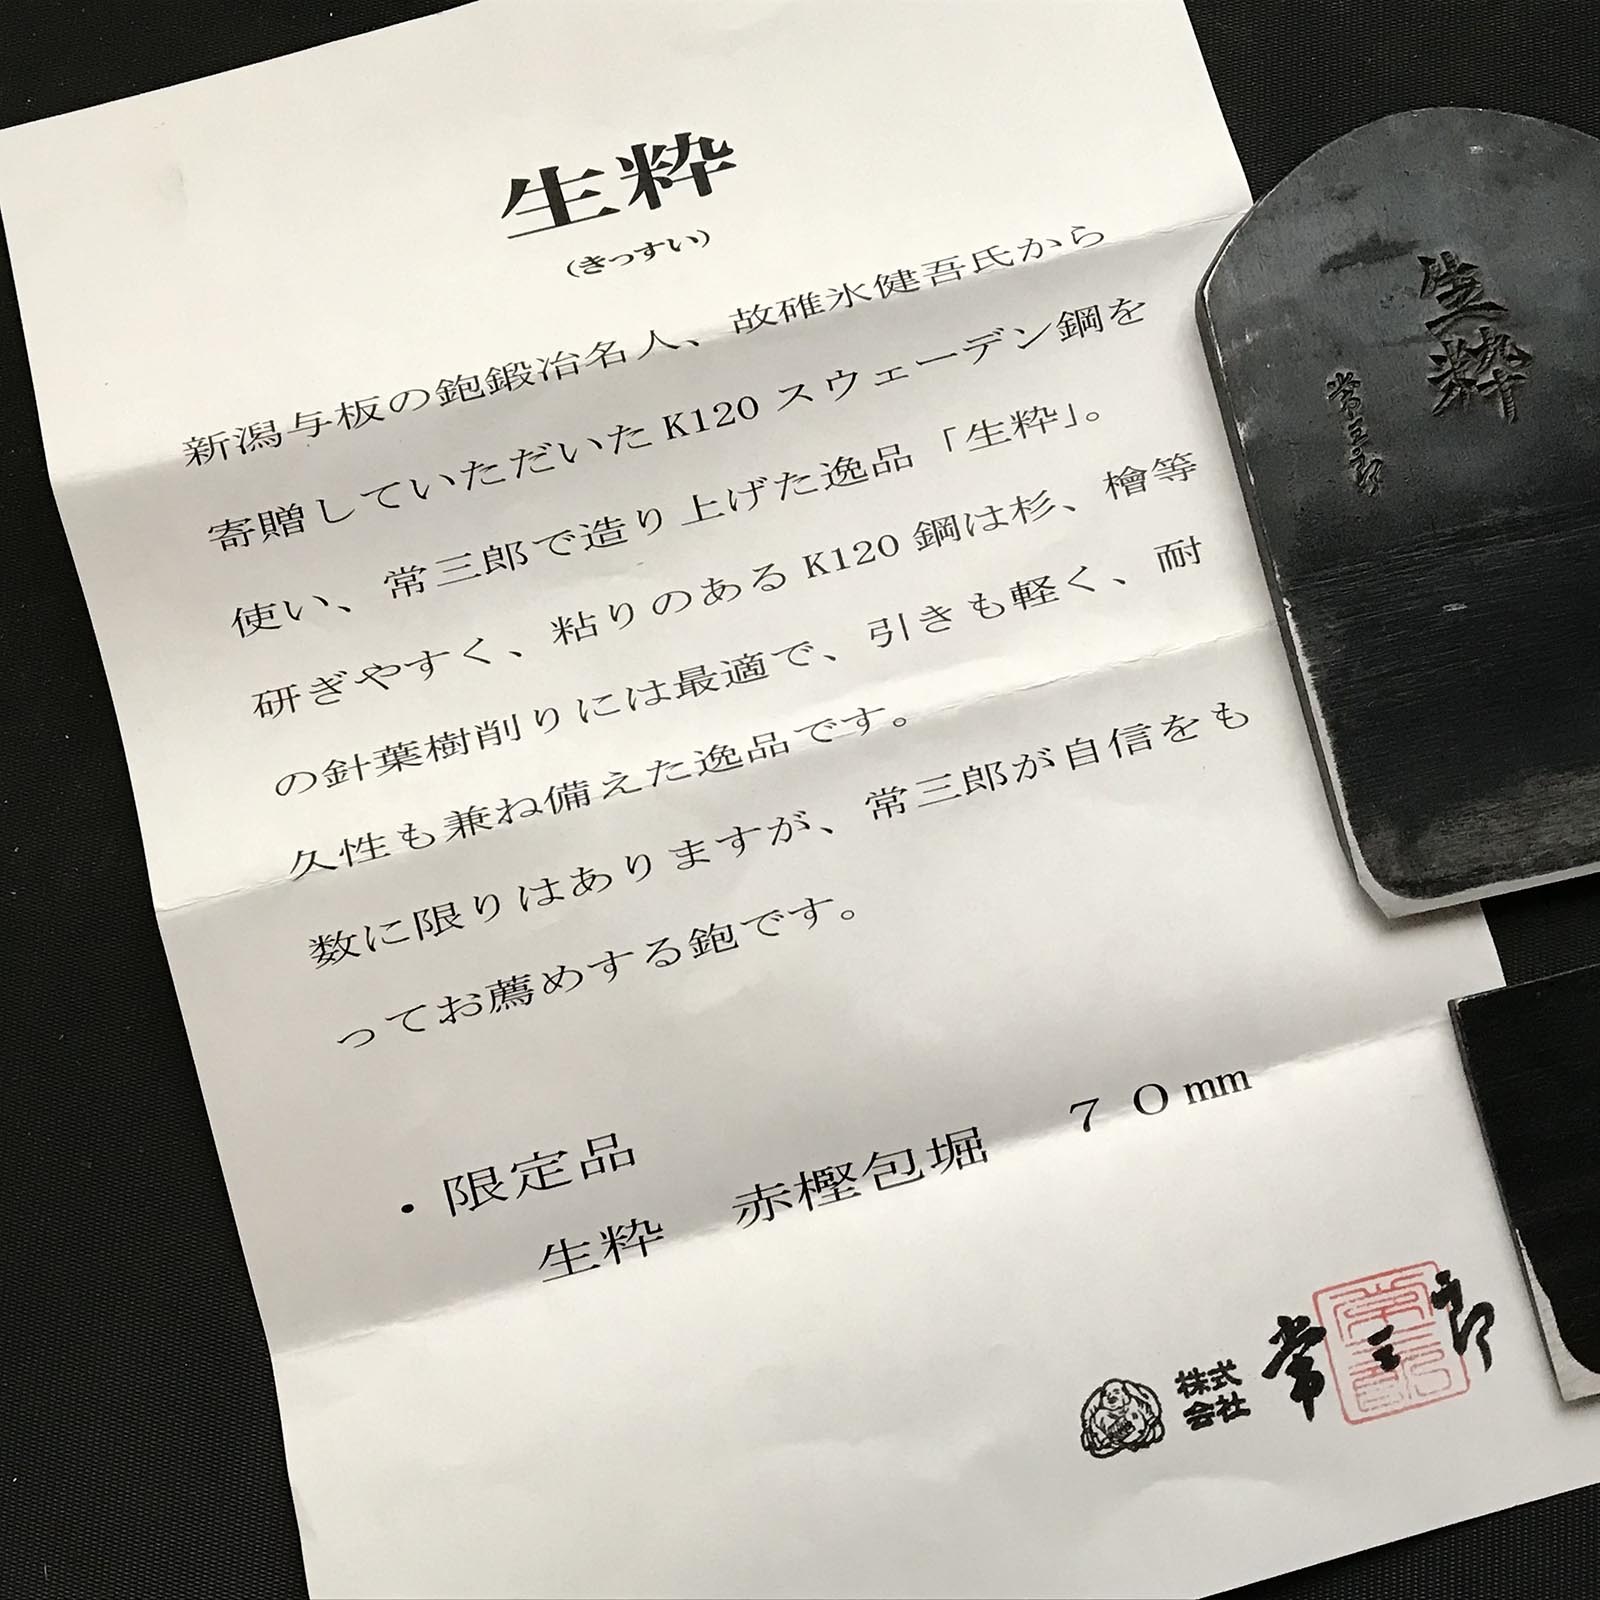 生粋
（きっすい）
新潟与板の鉋鍛冶名人、故碓氷健吾氏から
寄贈していただいたK120スウェーデン鋼を
使い、常三郎で造り上げた逸品「生粋」。
研ぎやすく、粘りのあるK120鋼は杉、檜等
の針葉樹削りには最適で、引きも軽く、耐
久性も兼ね備えた逸品です。
数に限りはありますが、常三郎が自信をも
ってお薦めする鉋です。
・限定品
生粋　赤樫包堀　７０mm
株式
会社
常三郎
生粋
常三郎